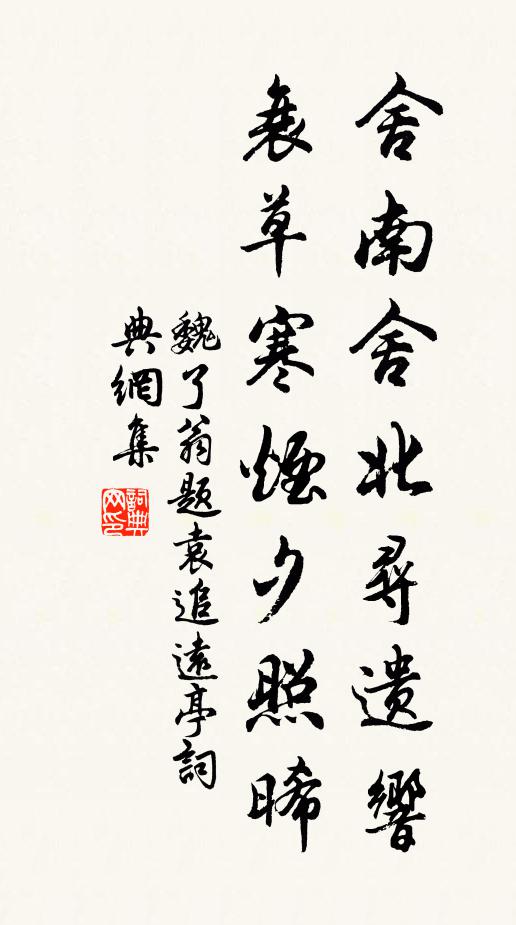 舍南舍北尋遺響
衰草寒煙夕照晞
魏了翁題袁追遠亭詞
典網集
詞典网印